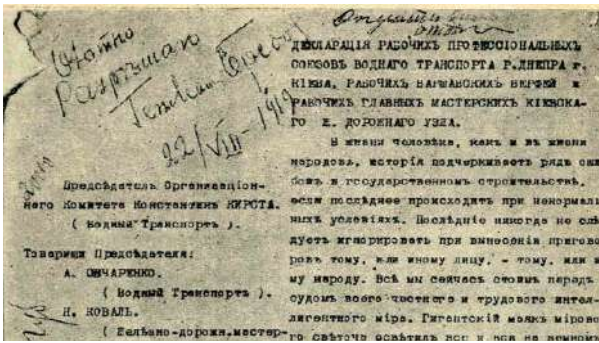 Печатно
Разрѣшаю
22/VIII - 1919
Предсѣдатель Организаціон-
наго Комитета Константинъ КИРСТА.
( Водный Транспортъ ).
Товарищи Предсѣдателя:
А. ОВЧАРЕНКО.
( Водный Транспортъ ).
Н. КОВАЛЬ.
( Желѣзно-дорожн.мастер-
ДЕКЛАРАЦІЯ РАБОЧИХЪ ПРОФЕССІОНАЛЬНЫХЪ
СОЮЗОВЪ ВОДНАГО ТРАНСПОРТА Р.ДНЕПРА г.
КІЕВА, РАБОЧИХЪ ВАРШАВСКИХЪ ВЕРФЕЙ и
РАБОЧИХЪ ГЛАВНЫХЪ МАСТЕРСКИХЪ КІЕВСКА-
ГО Ж. ДОРОЖНАГО УЗЛА.
В жизни человѣка, какъ и въ жизни
народовъ, исторія подчеркиваетъ рядъ оши
бокъ в государственномъ строительствѣ,
если послѣднее происходитъ при ненормаль
ныхъ условіяхъ. Послѣдніе никогда не слѣ
дуетъ игнорировать при вынесеніи пригово
ровъ тому, или иному лицу, - тому, или и
му народу. Всѣ мы сейчасъ стоимъ передъ
судомъ всего честнаго и трудового интел-
лигентнаго міра. Гигантскій маякъ мірово
го свѣточа освѣтилъ все и вся на земномъ